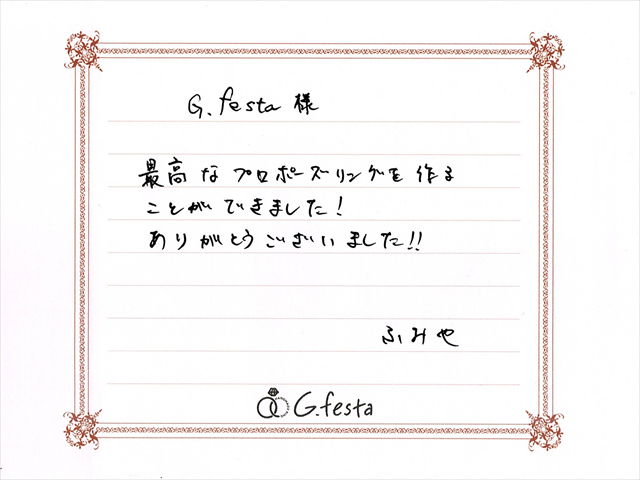 G.festa 様
最高なプロポーズリングを作る
ことができました!
ありがとうございました!!
ふみや
G.festa